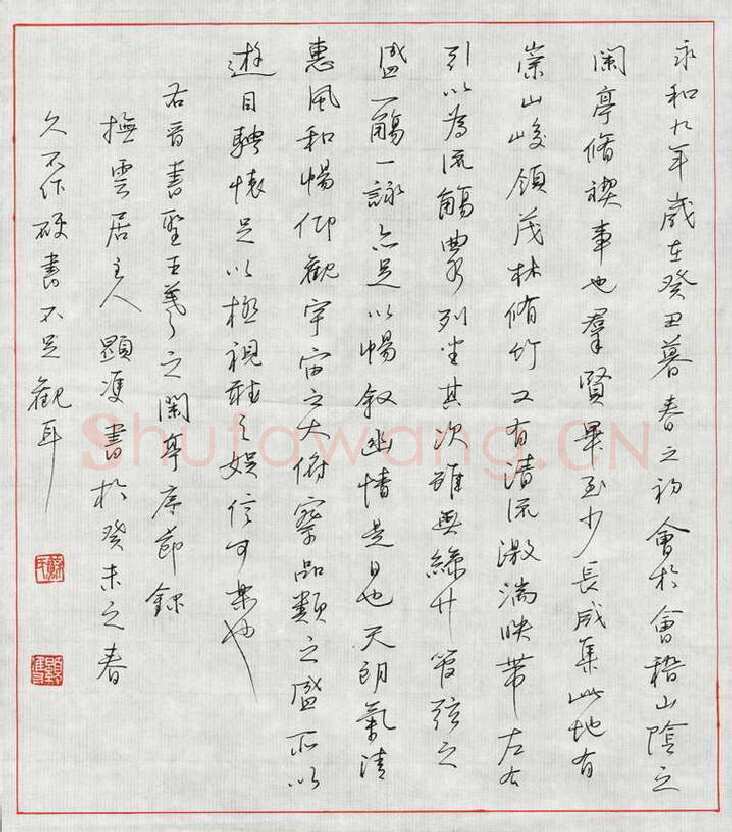 永和九年歲在癸丑暮春之初會於會稽山陰之
蘭亭脩禊事也羣賢畢至少長咸集此地有
崇山峻領茂林脩竹又有清流激湍映帶左右
引以為流觴曲水列坐其次雖無絲竹管弦之
盛一觴一詠亦足以暢叙幽情是日也天朗氣清
惠風和暢仰觀宇宙之大俯察品類之盛所以
遊目騁懷足以極視聽之娛信可樂也
右晉書聖王羲之蘭亭序節錄
撫雲居主人顯渡書於癸未之春
久不作硬書不足觀耳
Shufawang.CN